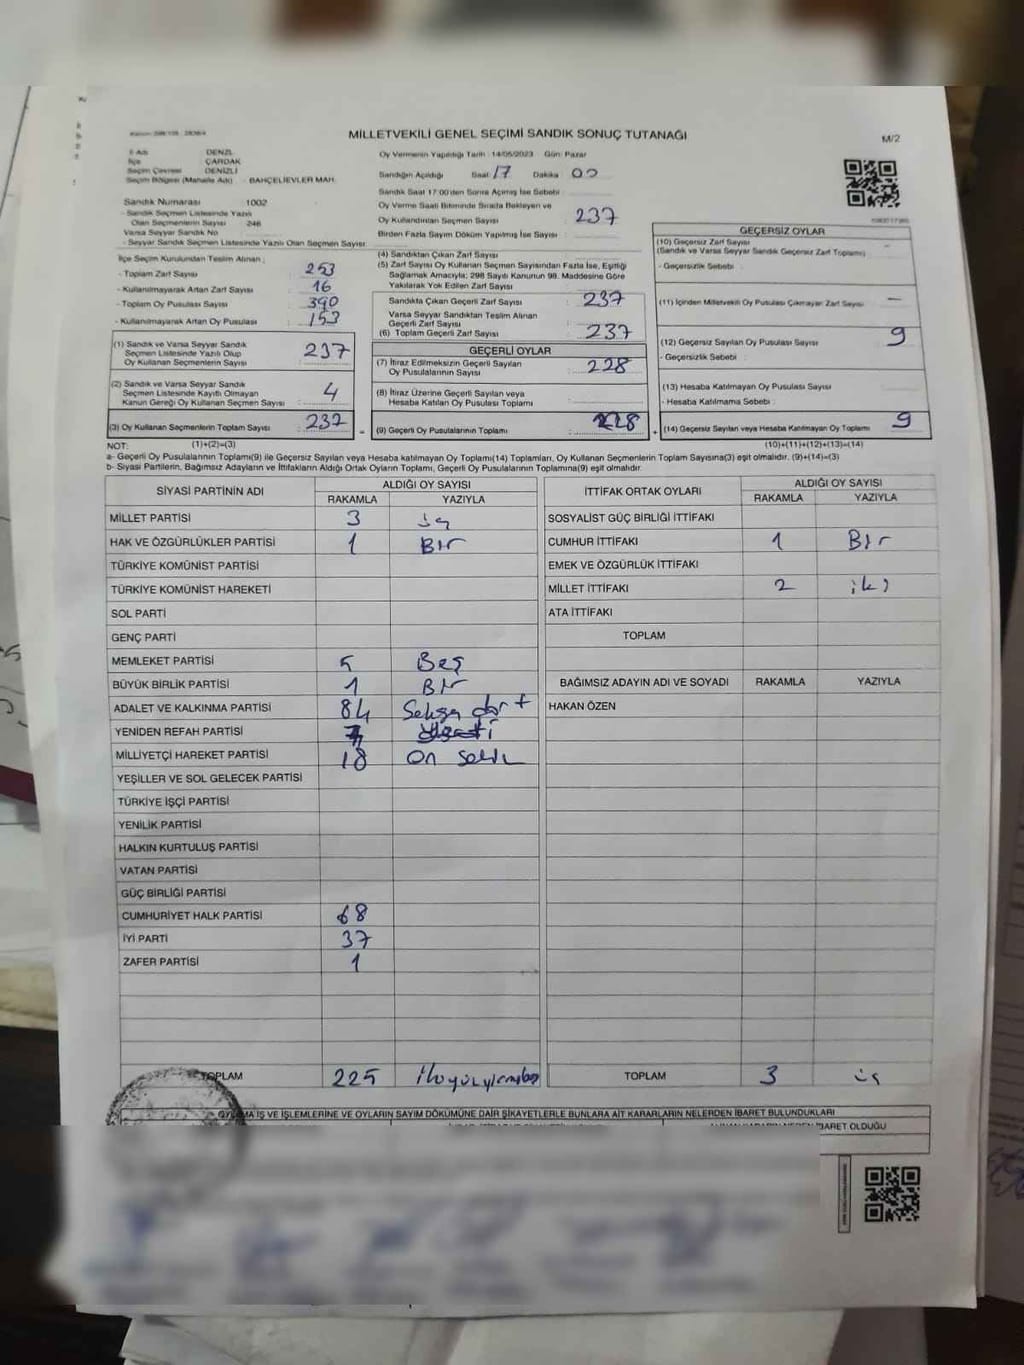 MİLLETVEKİLİ GENEL SEÇİMİ SANDIK SONUÇ TUTANAĞI
M/2
İl Adı DENİZLİ
İlçe ÇARDAK
Seçim Çevresi DENİZLİ
Seçim Bölgesi (Mahalle Adı) - BAHÇELİEVLER MAH.
Sandık Numarası 1002
- Sandık Seçmen Listesinde Yazılı Olan Seçmen Sayısı 246
Varsa Seyyar Sandık No
- Seyyar Sandık Seçmen Listesinde Yazılı Olan Seçmen Sayısı:
İlçe Seçim Kurulundan Teslim Alınan ;
- Toplam Zarf Sayısı 253
- Kullanılmayarak Artan Zarf Sayısı 16
- Toplam Oy Pusulası Sayısı 390
- Kullanılmayarak Artan Oy Pusulası 153
(1) Sandık ve Varsa Seyyar Sandık
Seçmen Listesinde Yazılı Olup
Oy Kullanan Seçmenlerin Sayısı 237
(2) Sandık ve Varsa Seyyar Sandık
Seçmen Listesinde Kayıtlı Olmayan
Kanun Gereği Oy Kullanan Seçmen Sayısı 4
(3) Oy Kullanan Seçmenlerin Toplam Sayısı 237
Oy Vermenin Yapıldığı Tarih : 14/05/2023 Gün: Pazar
Sandığın Açıldığı Saat 17 Dakika 00
Sandık Saat 17:00'den Sonra Açılmış İse Sebebi
Oy Verme Saati Bitiminde Sırada Bekleyen ve
Oy Kullandırılan Seçmen Sayısı 237
Birden Fazla Sayım Döküm Yapılmış İse Sayısı
(4) Sandıktan Çıkan Zarf Sayısı
(5) Zarf Sayısı Oy Kullanan Seçmen Sayısından Fazla İse, Eşitliği
Sağlamak Amacıyla; 298 Sayılı Kanunun 98. Maddesine Göre
Yakılarak Yok Edilen Zarf Sayısı
Sandıkta Çıkan Geçerli Zarf Sayısı 237
Varsa Seyyar Sandıktan Teslim Alınan
Geçerli Zarf Sayısı
(6) Toplam Geçerli Zarf Sayısı 237
GEÇERLİ OYLAR
(7) İtiraz Edilmeksizin Geçerli Sayılan
Oy Pusulalarının Sayısı 228
(8) İtiraz Üzerine Geçerli Sayılan veya
Hesaba Katılan Oy Pusulası Toplamı
(9) Geçerli Oy Pusulalarının Toplamı 228
GEÇERSİZ OYLAR
(10) Geçersiz Zarf Sayısı
(Sandık ve Varsa Seyyar Sandık Geçersiz Zarf Toplamı) –
- Geçersizlik Sebebi
(11) İçinden Milletvekili Oy Pusulası Çıkmayan Zarf Sayısı –
(12) Geçersiz Sayılan Oy Pusulası Sayısı 9
- Geçersizlik Sebebi
(13) Hesaba Katılmayan Oy Pusulası Sayısı
- Hesaba Katılmama Sebebi
(14) Geçersiz Sayılan veya Hesaba Katılmayan Oy Toplamı 9
NOT: (1)+(2)=(3) (10)+(11)+(12)+(13)=(14)
a- Geçerli Oy Pusulalarının Toplamı(9) ile Geçersiz Sayılan veya Hesaba katılmayan Oy Toplamı(14) Toplamları, Oy Kullanan Seçmenlerin Toplam Sayısına(3) eşit olmalıdır. (9)+(14)=(3)
b- Siyasi Partilerin, Bağımsız Adayların ve İttifakların Aldığı Ortak Oyların Toplamı, Geçerli Oy Pusulalarının Toplamına(9) eşit olmalıdır.
SİYASİ PARTİNİN ADI ALDIĞI OY SAYISI
RAKAMLA YAZIYLA
MİLLET PARTİSİ 3 üç
HAK VE ÖZGÜRLÜKLER PARTİSİ 1 Bir
TÜRKİYE KOMÜNİST PARTİSİ
TÜRKİYE KOMÜNİST HAREKETİ
SOL PARTİ
GENÇ PARTİ
MEMLEKET PARTİSİ 5 Beş
BÜYÜK BİRLİK PARTİSİ 1 Bir
ADALET VE KALKINMA PARTİSİ 84 Seksen dört
YENİDEN REFAH PARTİSİ
MİLLİYETÇİ HAREKET PARTİSİ 18 On Sekiz
YEŞİLLER VE SOL GELECEK PARTİSİ
TÜRKİYE İŞÇİ PARTİSİ
YENİLİK PARTİSİ
HALKIN KURTULUŞ PARTİSİ
VATAN PARTİSİ
GÜÇ BİRLİĞİ PARTİSİ
CUMHURİYET HALK PARTİSİ 68
İYİ PARTİ 37
ZAFER PARTİSİ 1
TOPLAM 225 İkiyüzyirmibeş
İTTİFAK ORTAK OYLARI ALDIĞI OY SAYISI
RAKAMLA YAZIYLA
SOSYALİST GÜÇ BİRLİĞİ İTTİFAKI
CUMHUR İTTİFAKI 1 Bir
EMEK VE ÖZGÜRLÜK İTTİFAKI
MİLLET İTTİFAKI 2 iki
ATA İTTİFAKI
TOPLAM
BAĞIMSIZ ADAYIN ADI VE SOYADI RAKAMLA YAZIYLA
HAKAN ÖZEN
TOPLAM 3 üç
İŞ VE İŞLEMLERİNE VE OYLARIN SAYIM DÖKÜMÜNE DAİR ŞİKAYETLERLE BUNLARA AİT KARARLARIN NELERDEN İBARET BULUNDUKLARI
İBARET OLDUĞU